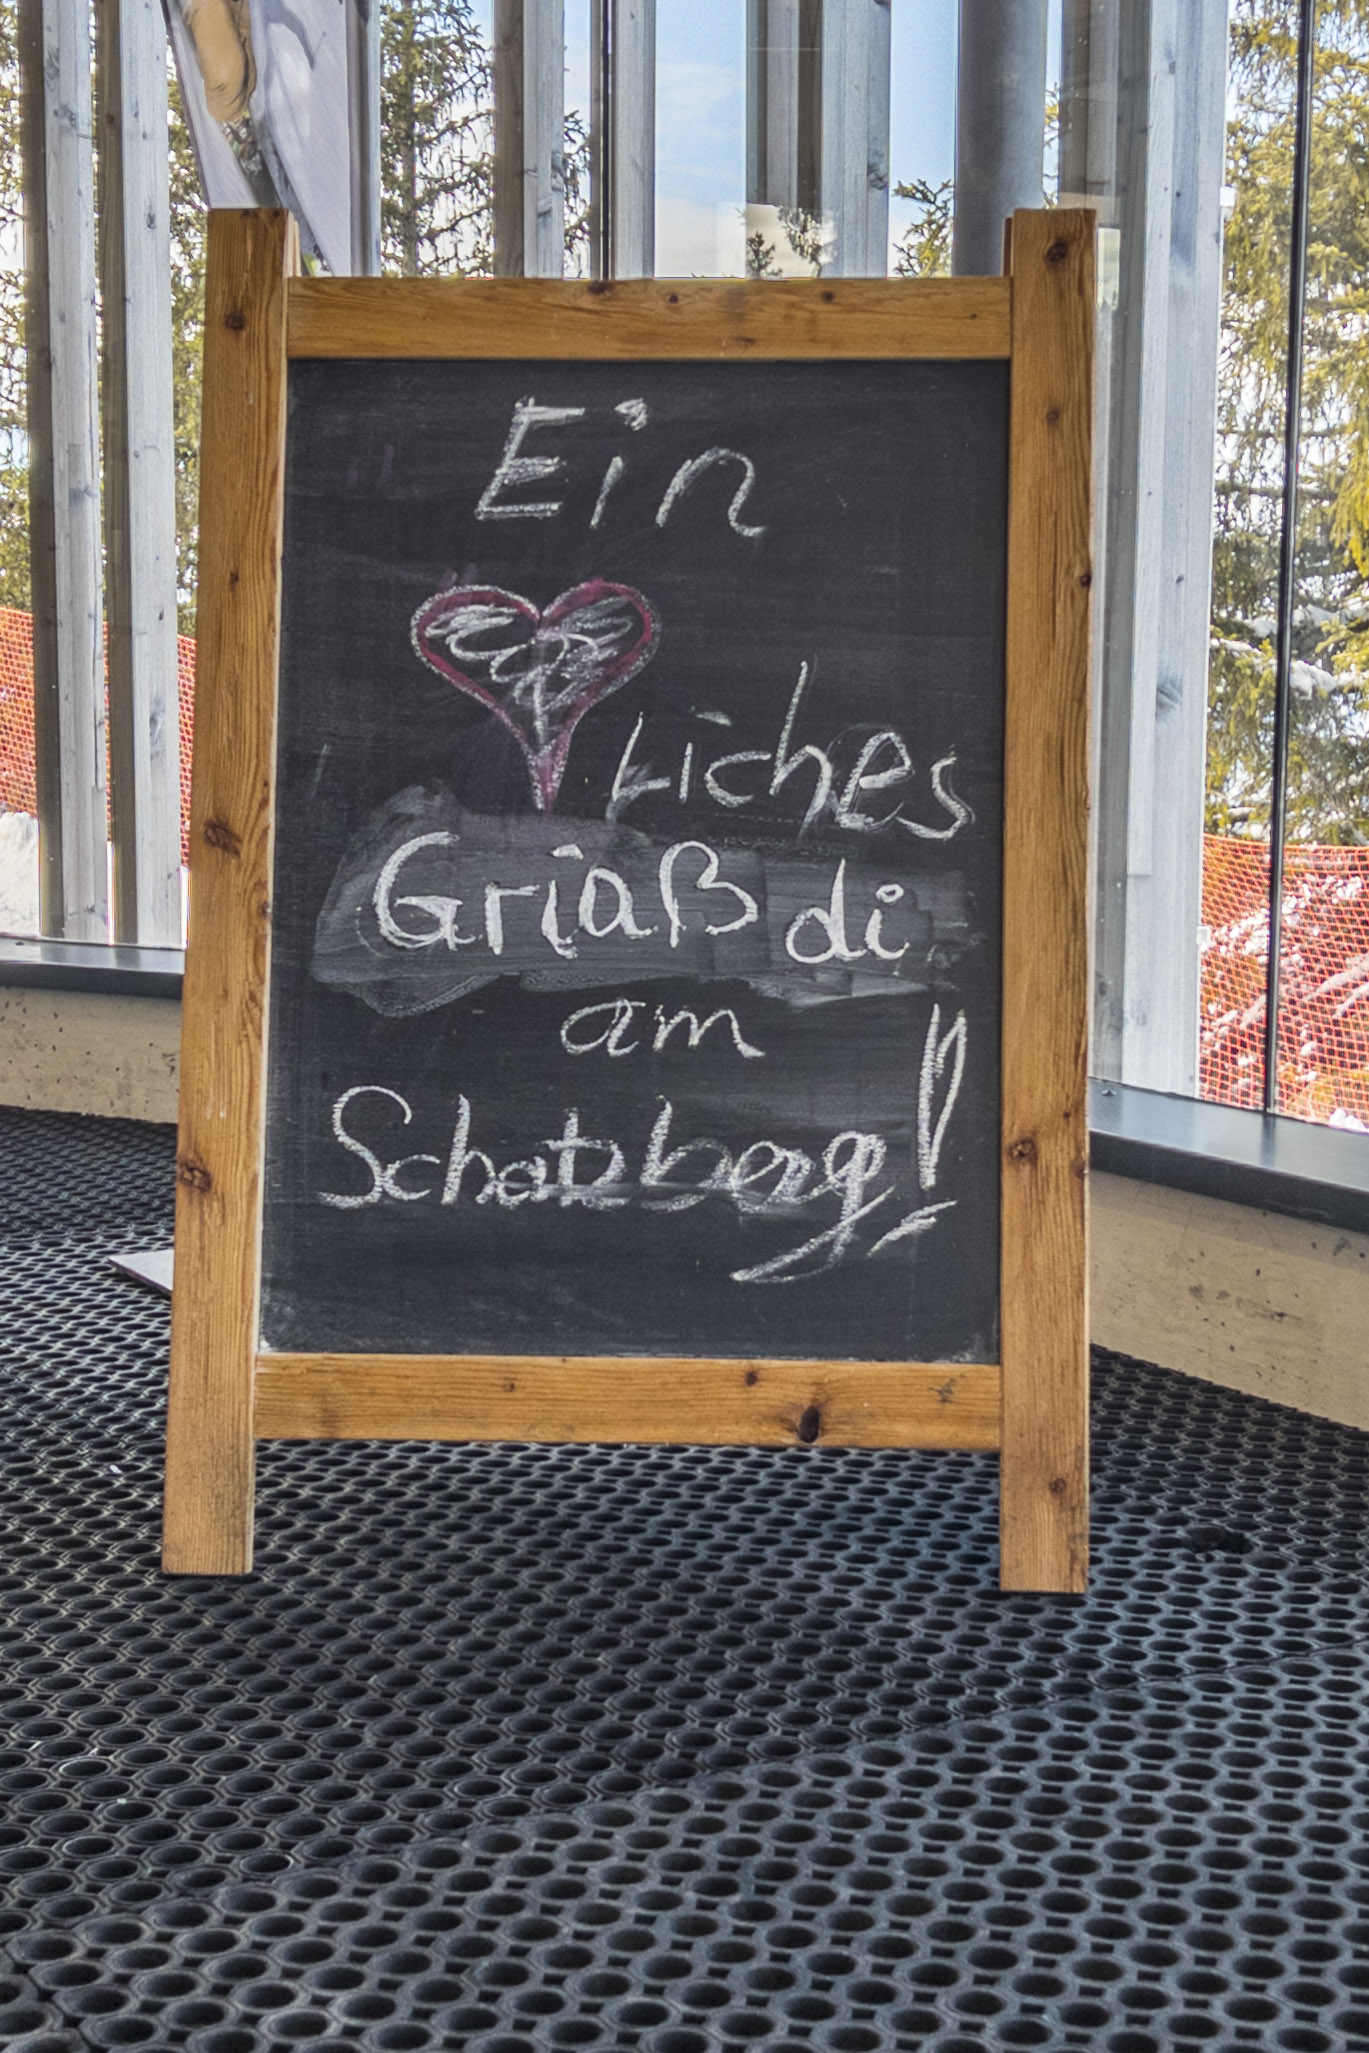 Ein
❤Liches
Griaß di
am
Schatzberg!